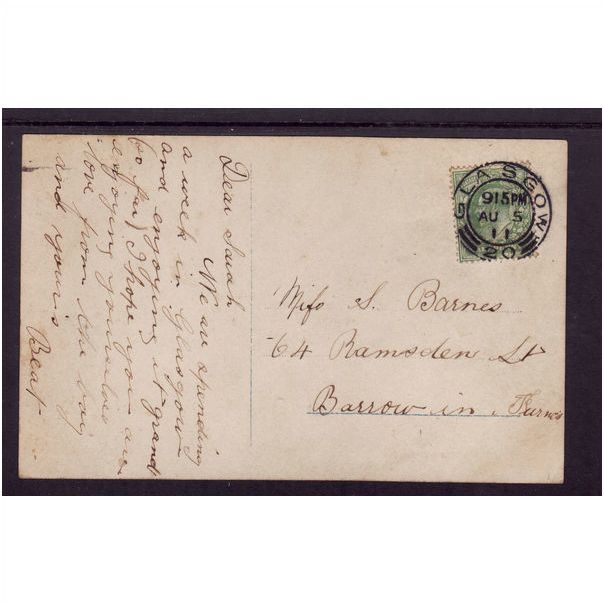 Dear Sarah
We are spending
a week in Glasgow
and enjoying it grand
(so far) I hope you are
enjoying yourselves
love from the boy
and yours
Beat
GLASGOW
915PM
AU 5
11
20
Miss S. Barnes
64 Ramsden St
Barrow in Furness